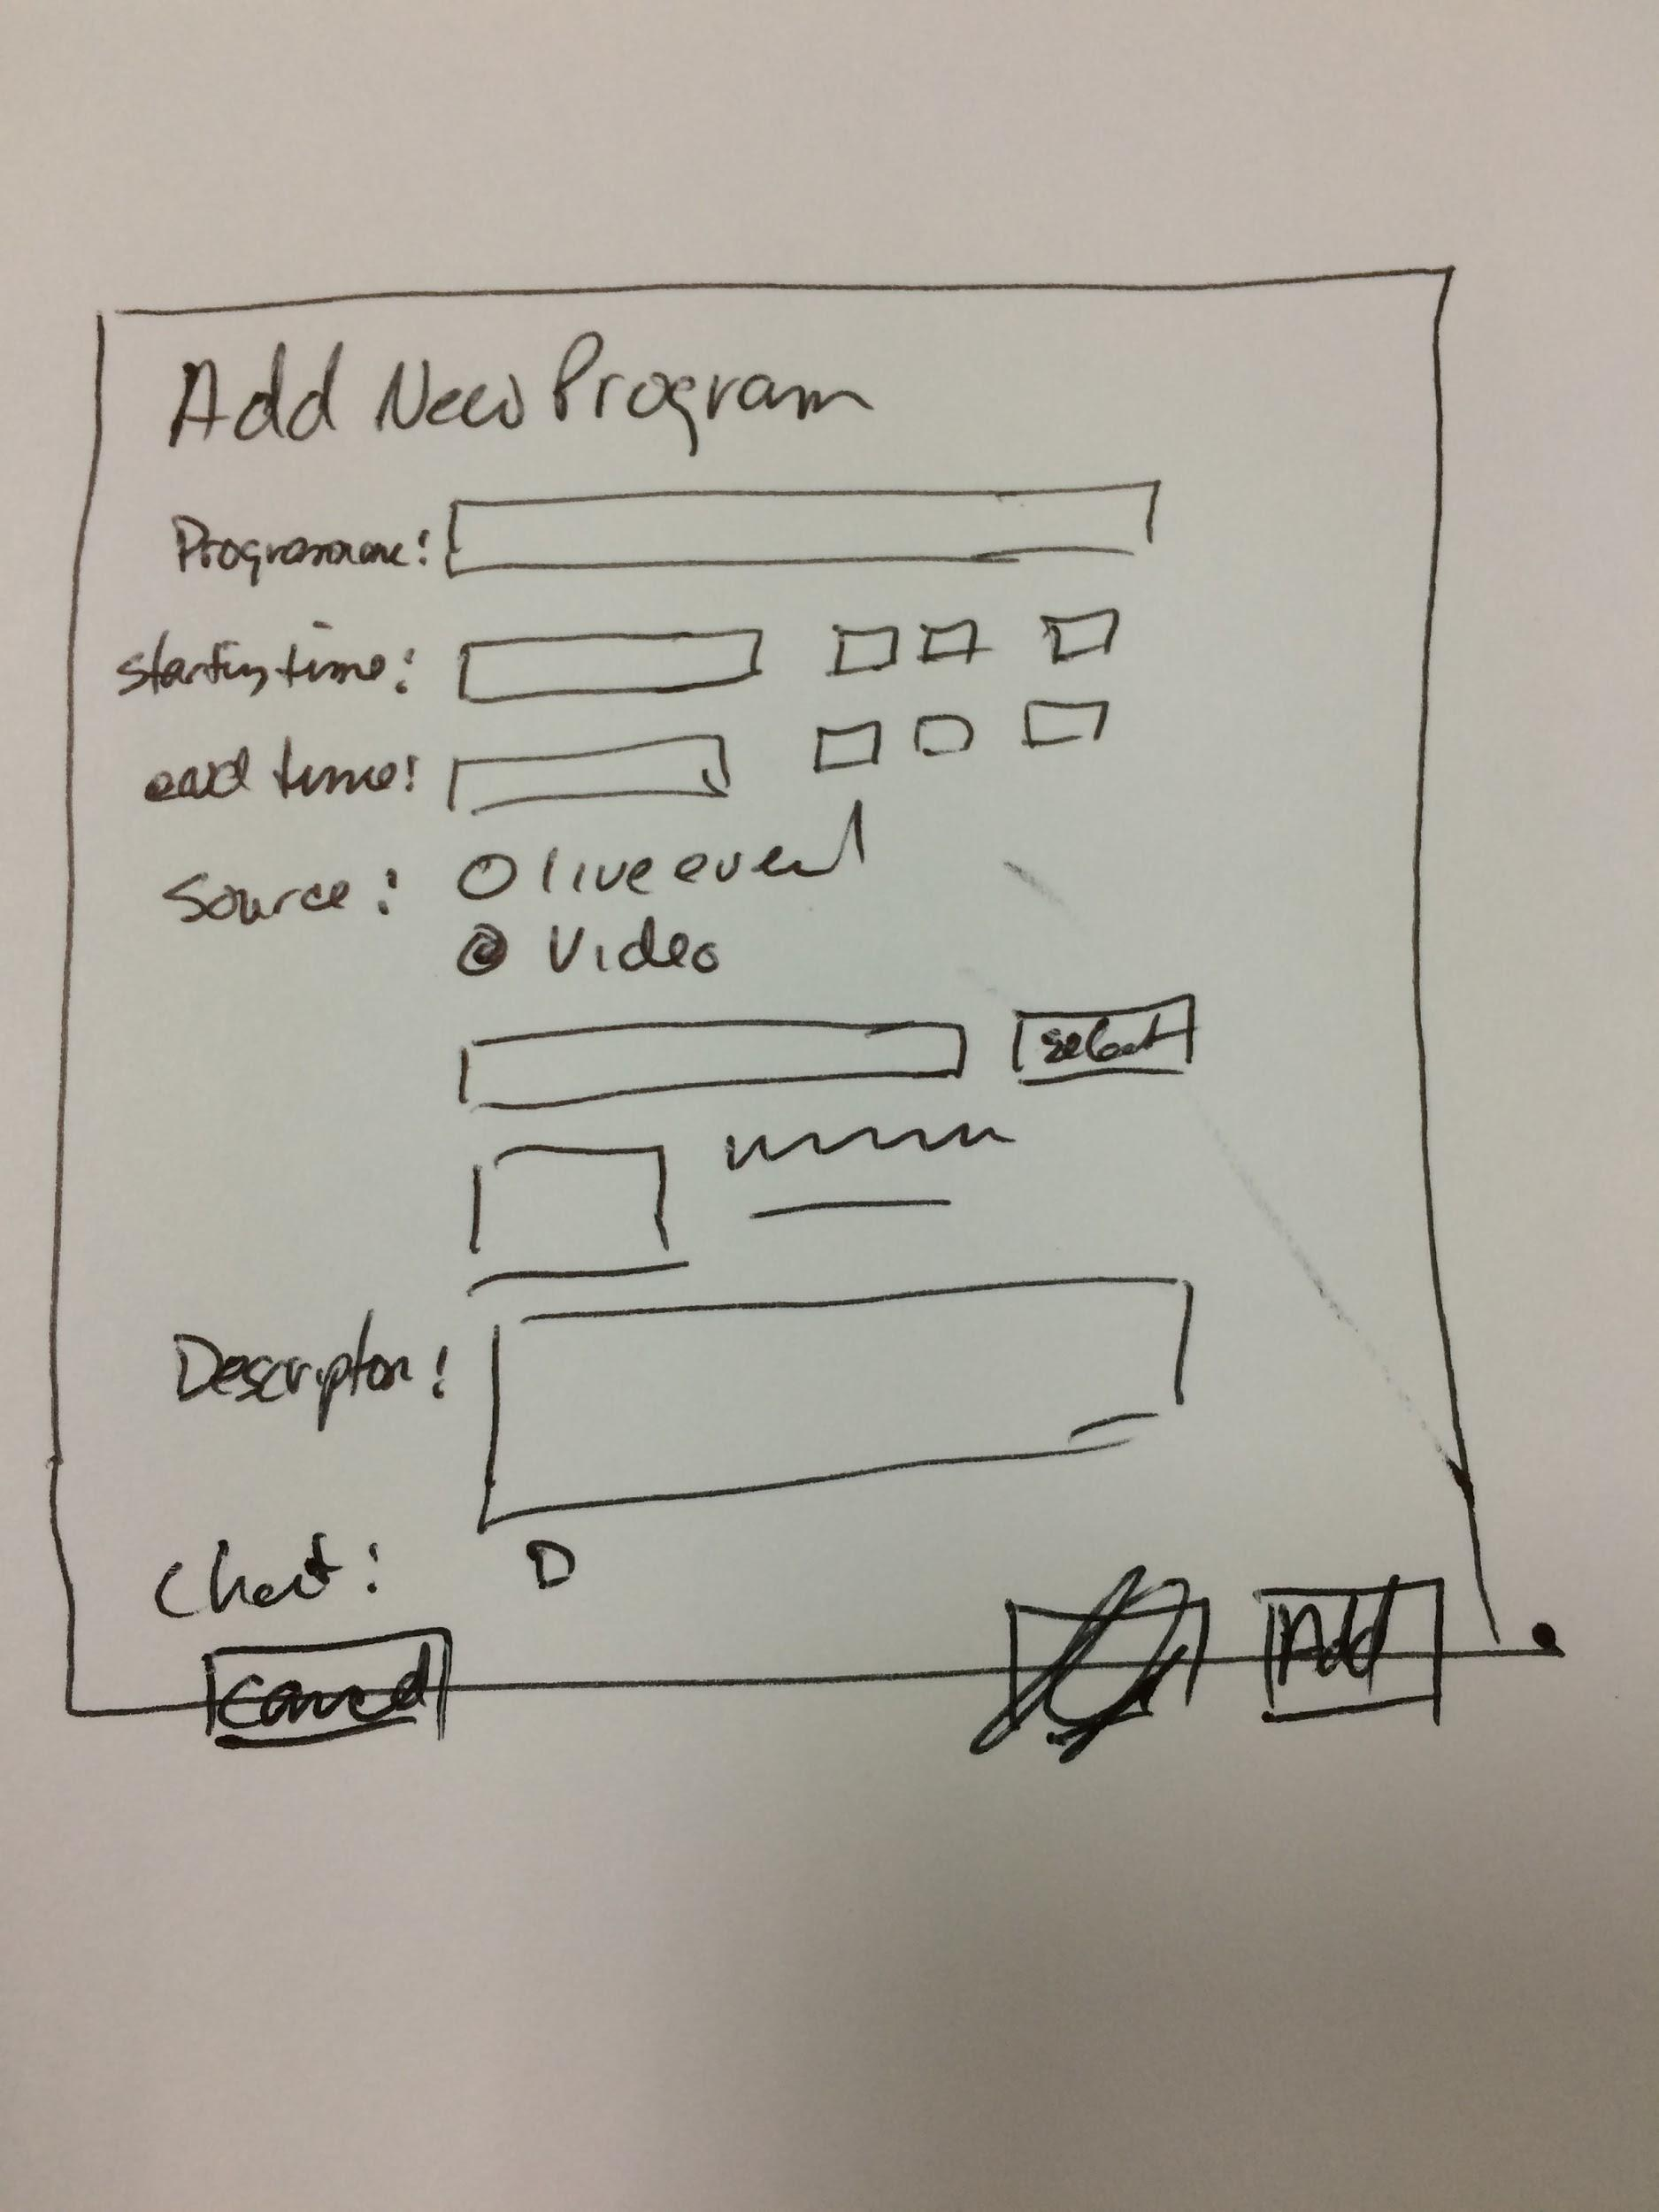 Add New Program
Programname:
starting time:
end time:
Source: live event
Video
select
Description:
Chat:
Cancel
Add